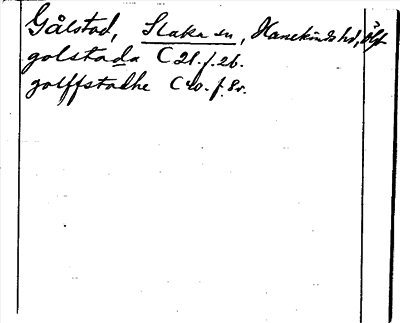 Gålstad, Slaka sn, Hanekinds hd, Ög
golstada C 21. f. 26.
golffstadhe C 20. f. 8v.